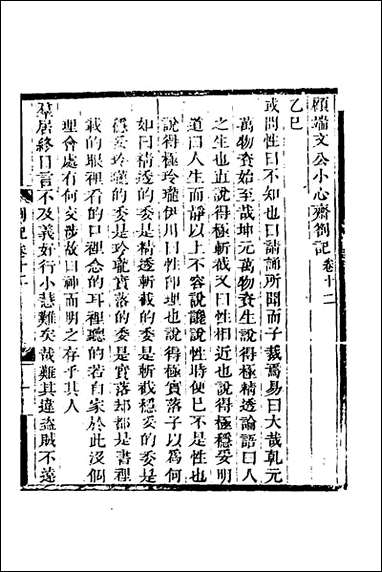 顧端文公小心齋劄記卷十二
乙巳
或問性曰不知也曰請誦所聞而子裁焉易曰大哉乾元
萬物資始至哉坤元萬物資生說得極精透論語曰人
之生也直說得極斬截又曰性相近也說得極穩妥明
道曰人生而靜以上不容說纔說性時便已不是性也
說得極玲瓏伊川曰性即理也說得極實落子以為何
如曰精透的委是精透斬截的委是斬截穩妥的委是
穩妥玲瓏的委是玲瓏實落的委是實落却都是書裡
載的眼裡看的口裡念的耳裡聽的若自家於此沒個
理會處有何交涉故曰神而明之存乎其人
羣居終日言不及義好行小慧難矣哉難其違盜賊不遠
劄記卷十二